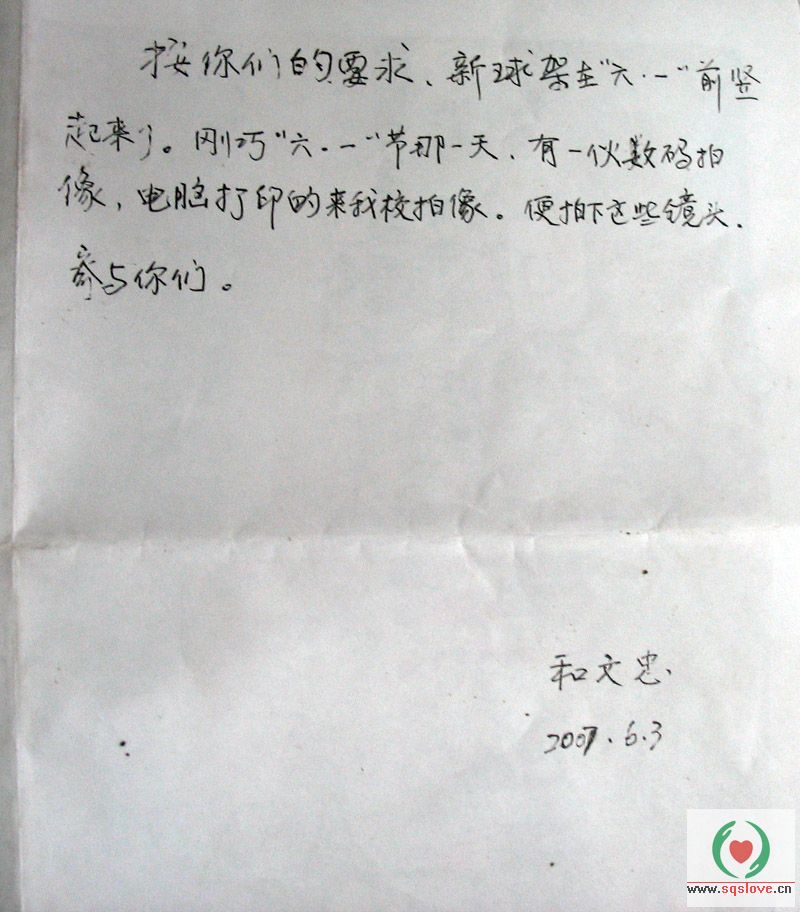 按你们的要求、新球架在“六·一“前竖
起来了。刚巧“六·一“节那一天、有一伙数码拍
像，电脑打印的来我校拍像。便拍下这些镜头、
寄与你们。
和文忠
2007.6.3
www.sqslove.cn